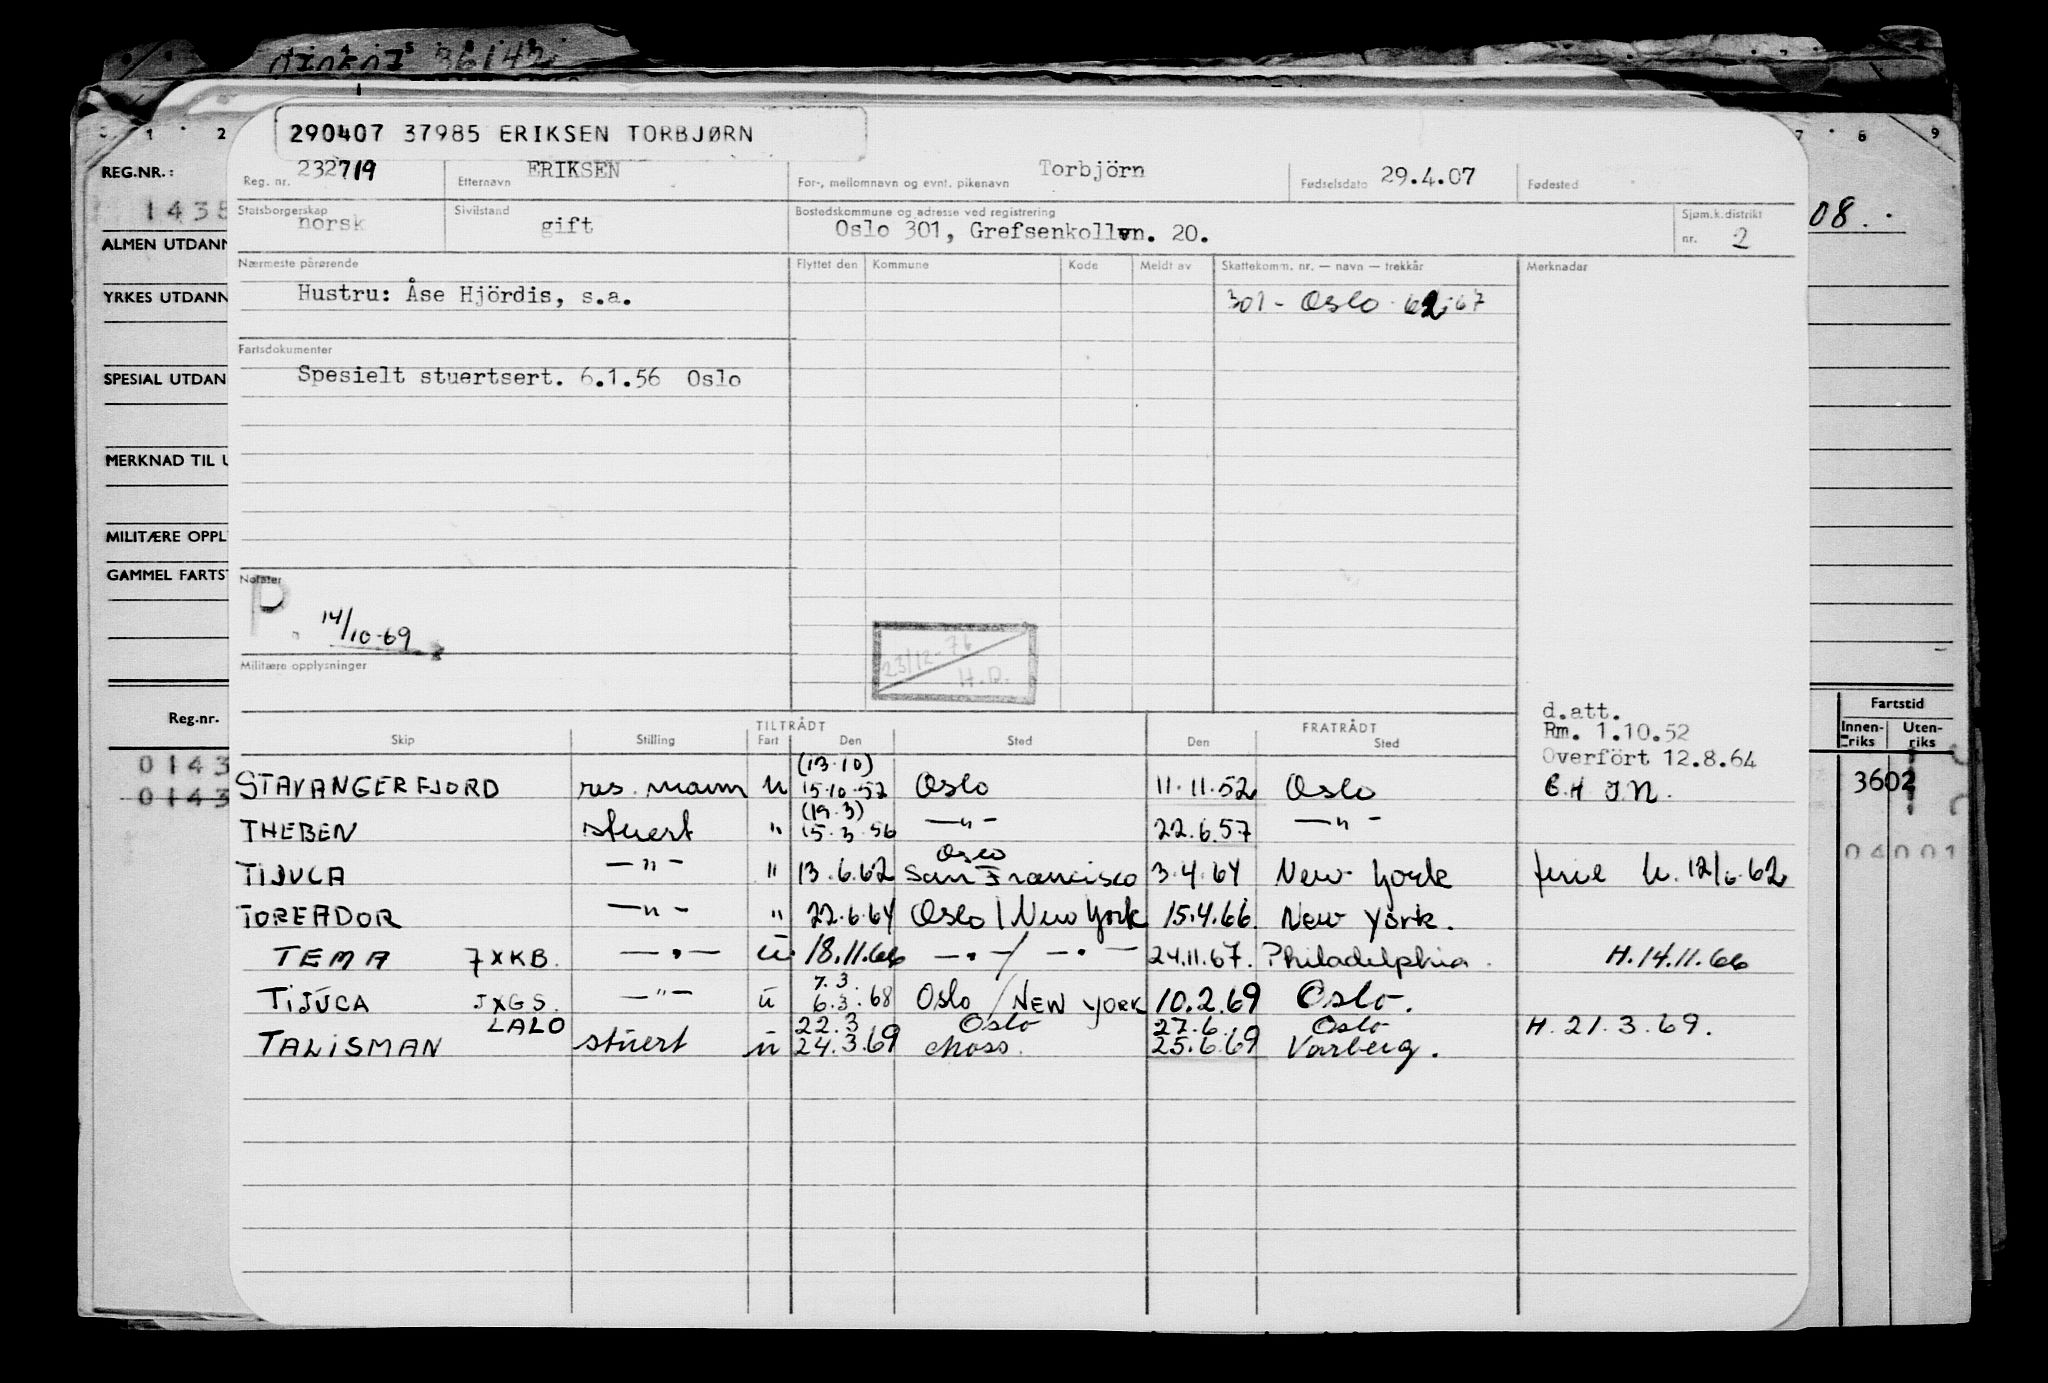 36142
1 2 7 8 9
290407 37985 ERIKSEN TORBJØRN
REG.NR.:
Reg. nr. 232719 Etternavn ERIKSEN For-, mellomnavn og evnt. pikenavn Torbjörn Fødselsdato 29.4.07 Fødested
1435
Statsborgerskap norsk Sivilstand gift Bostedskommune og adresse ved registrering Oslo 301, Grefsenkollvn. 20. Sjøm.k.distrikt nr. 2
08.
ALMEN UTDANN
Nærmeste pårørende Flyttet den Kommune Kode Meldt av Skattekomm. nr. — navn — trekkår Merknader
YRKES UTDANN
Hustru: Åse Hjördis, s.a. 301 - Oslo 62-67
Fartsdokumenter
SPESIAL UTDAN
Spesielt stuertsert. 6.1.56 Oslo
MERKNAD TIL U
MILITÆRE OPPL
GAMMEL FARTST
Notater
P. 14/10-69
23/12-76 H.D.
Militære opplysninger
Reg.-nr.
Fartstid
Innen-riks Uten-riks
d.att.
Rm. 1.10.52
Overfört 12.8.64
TILTRÅDT FRATRÅDT
Skip Stilling Fart Den Sted Den Sted
0143
0143
3602
04001
(13.10)
STAVANGERFJORD res. mann u 15.10.52 Oslo 11.11.52 Oslo
(19.3)
THEBEN stuert " 15.3.56 —"— 22.6.57 —"—
Oslo
TIJUCA —"— " 13.6.62 San Francisco 3.4.64 New York ferie 12/6.62
TOREADOR —"— " 22.6.64 Oslo / New York 15.4.66. New York.
TEMA 7XKB. —"— u. 18.11.66 —"— / —"— 24.11.67. Philadelphia. H.14.11.66
7.3.
TIJUCA JXGS. —"— u 6.3.68 Oslo / NEW YORK 10.2.69 Oslo.
LALO 22.3 Oslo 27.6. Oslo
TALISMAN stuert u 24.3.69 Moss. 25.6.69 Varberg. H. 21.3.69.